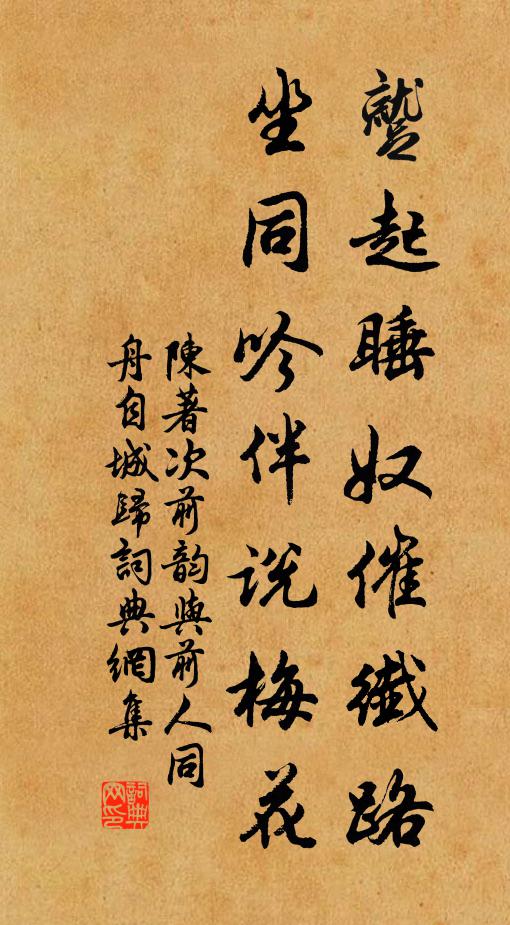 蹵起睡奴催纖路
坐同吟伴說梅花
陳著次前韵與前人同
舟自城歸詞典網集
詞典
网印